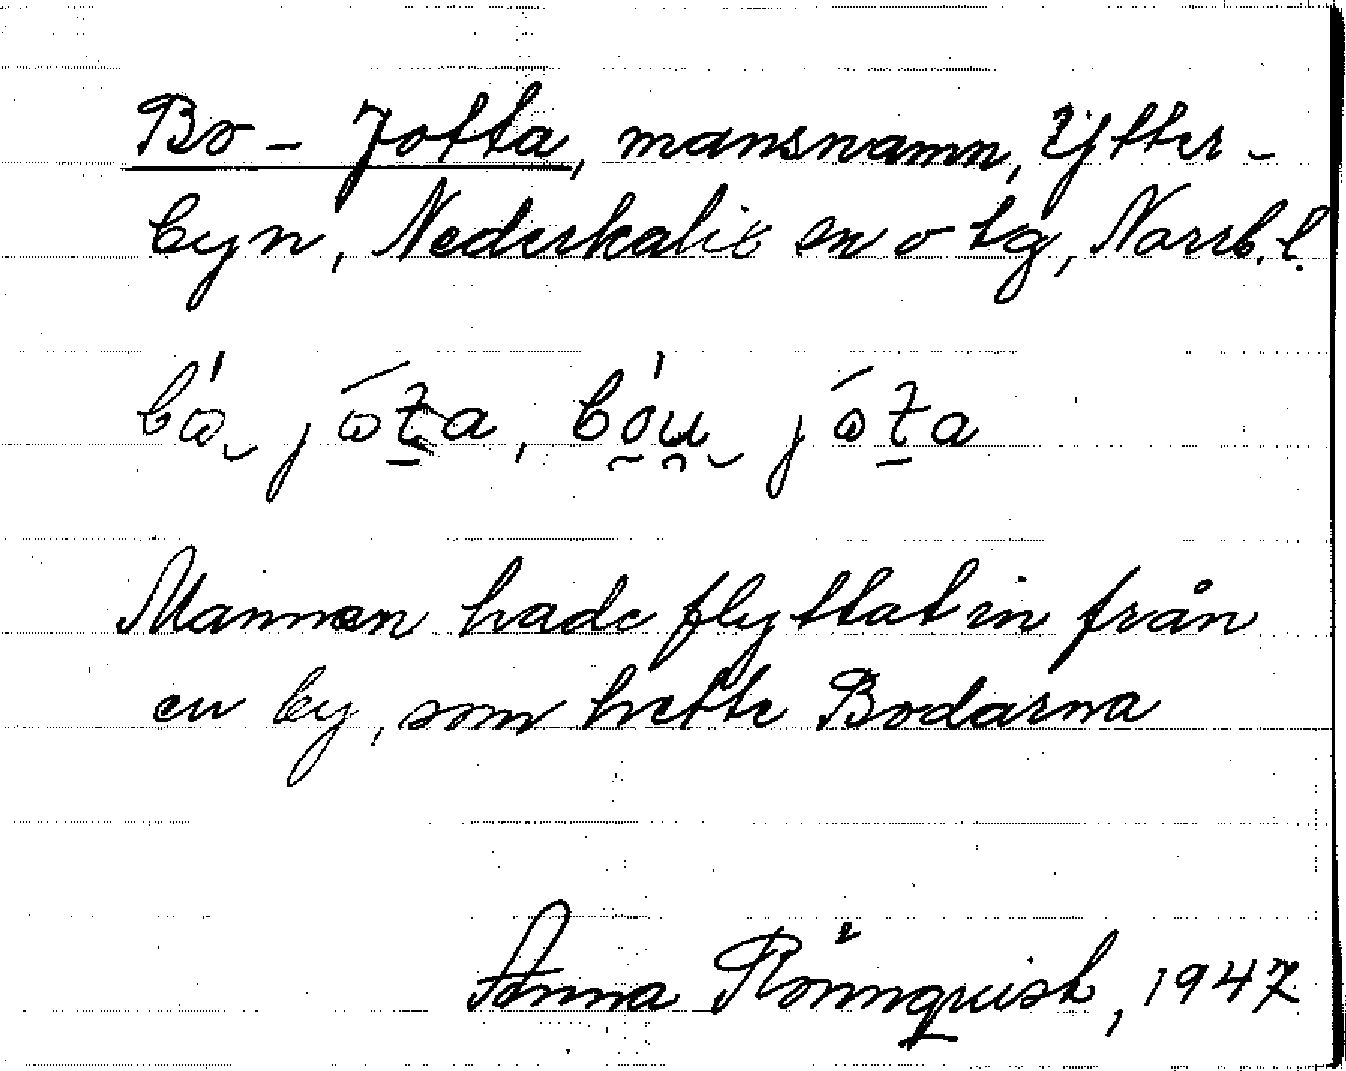 Bo-Jotta, mansnamn, Ytter-
byn, Nederkalix en o tg, Norrb. l.
Mannen hade flyttat in från
en by, som hette Bodarna
Anna Rönnqvist, 1947